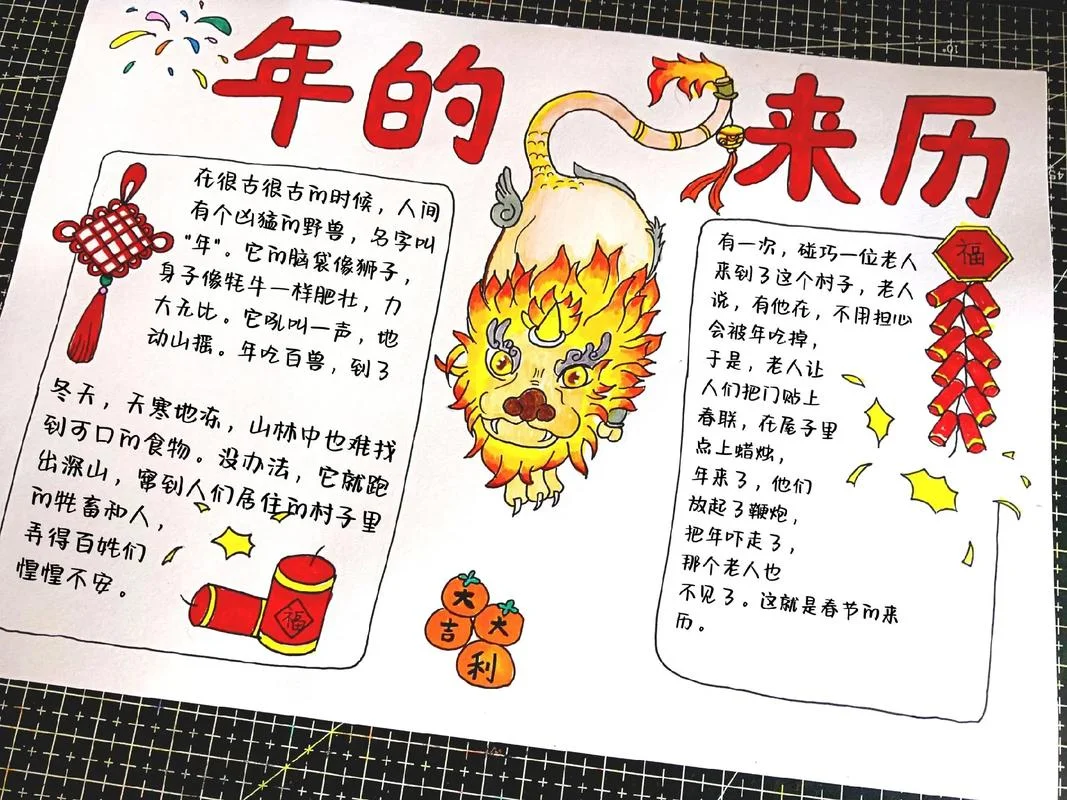 年的来历
在很古很古的时候，人间
有个凶猛的野兽，名字叫
“年”。它的脑袋像狮子，
身子像牦牛一样肥壮，力
大无比。它吼叫一声，地
动山摇。年吃百兽，到了
冬天，天寒地冻，山林中也难找
到可口的食物。没办法，它就跑
出深山，窜到人们居住的村子里
的牲畜和人，
弄得百姓们
惶惶不安。
福
大
吉
大
利
有一次，碰巧一位老人
来到了这个村子，老人
说，有他在，不用担心
会被年吃掉，
于是，老人让
人们把门贴上
春联，在屋子里
点上蜡烛，
年来了，他们
放起了鞭炮，
把年吓走了，
那个老人也
不见了。这就是春节的来
历。
福